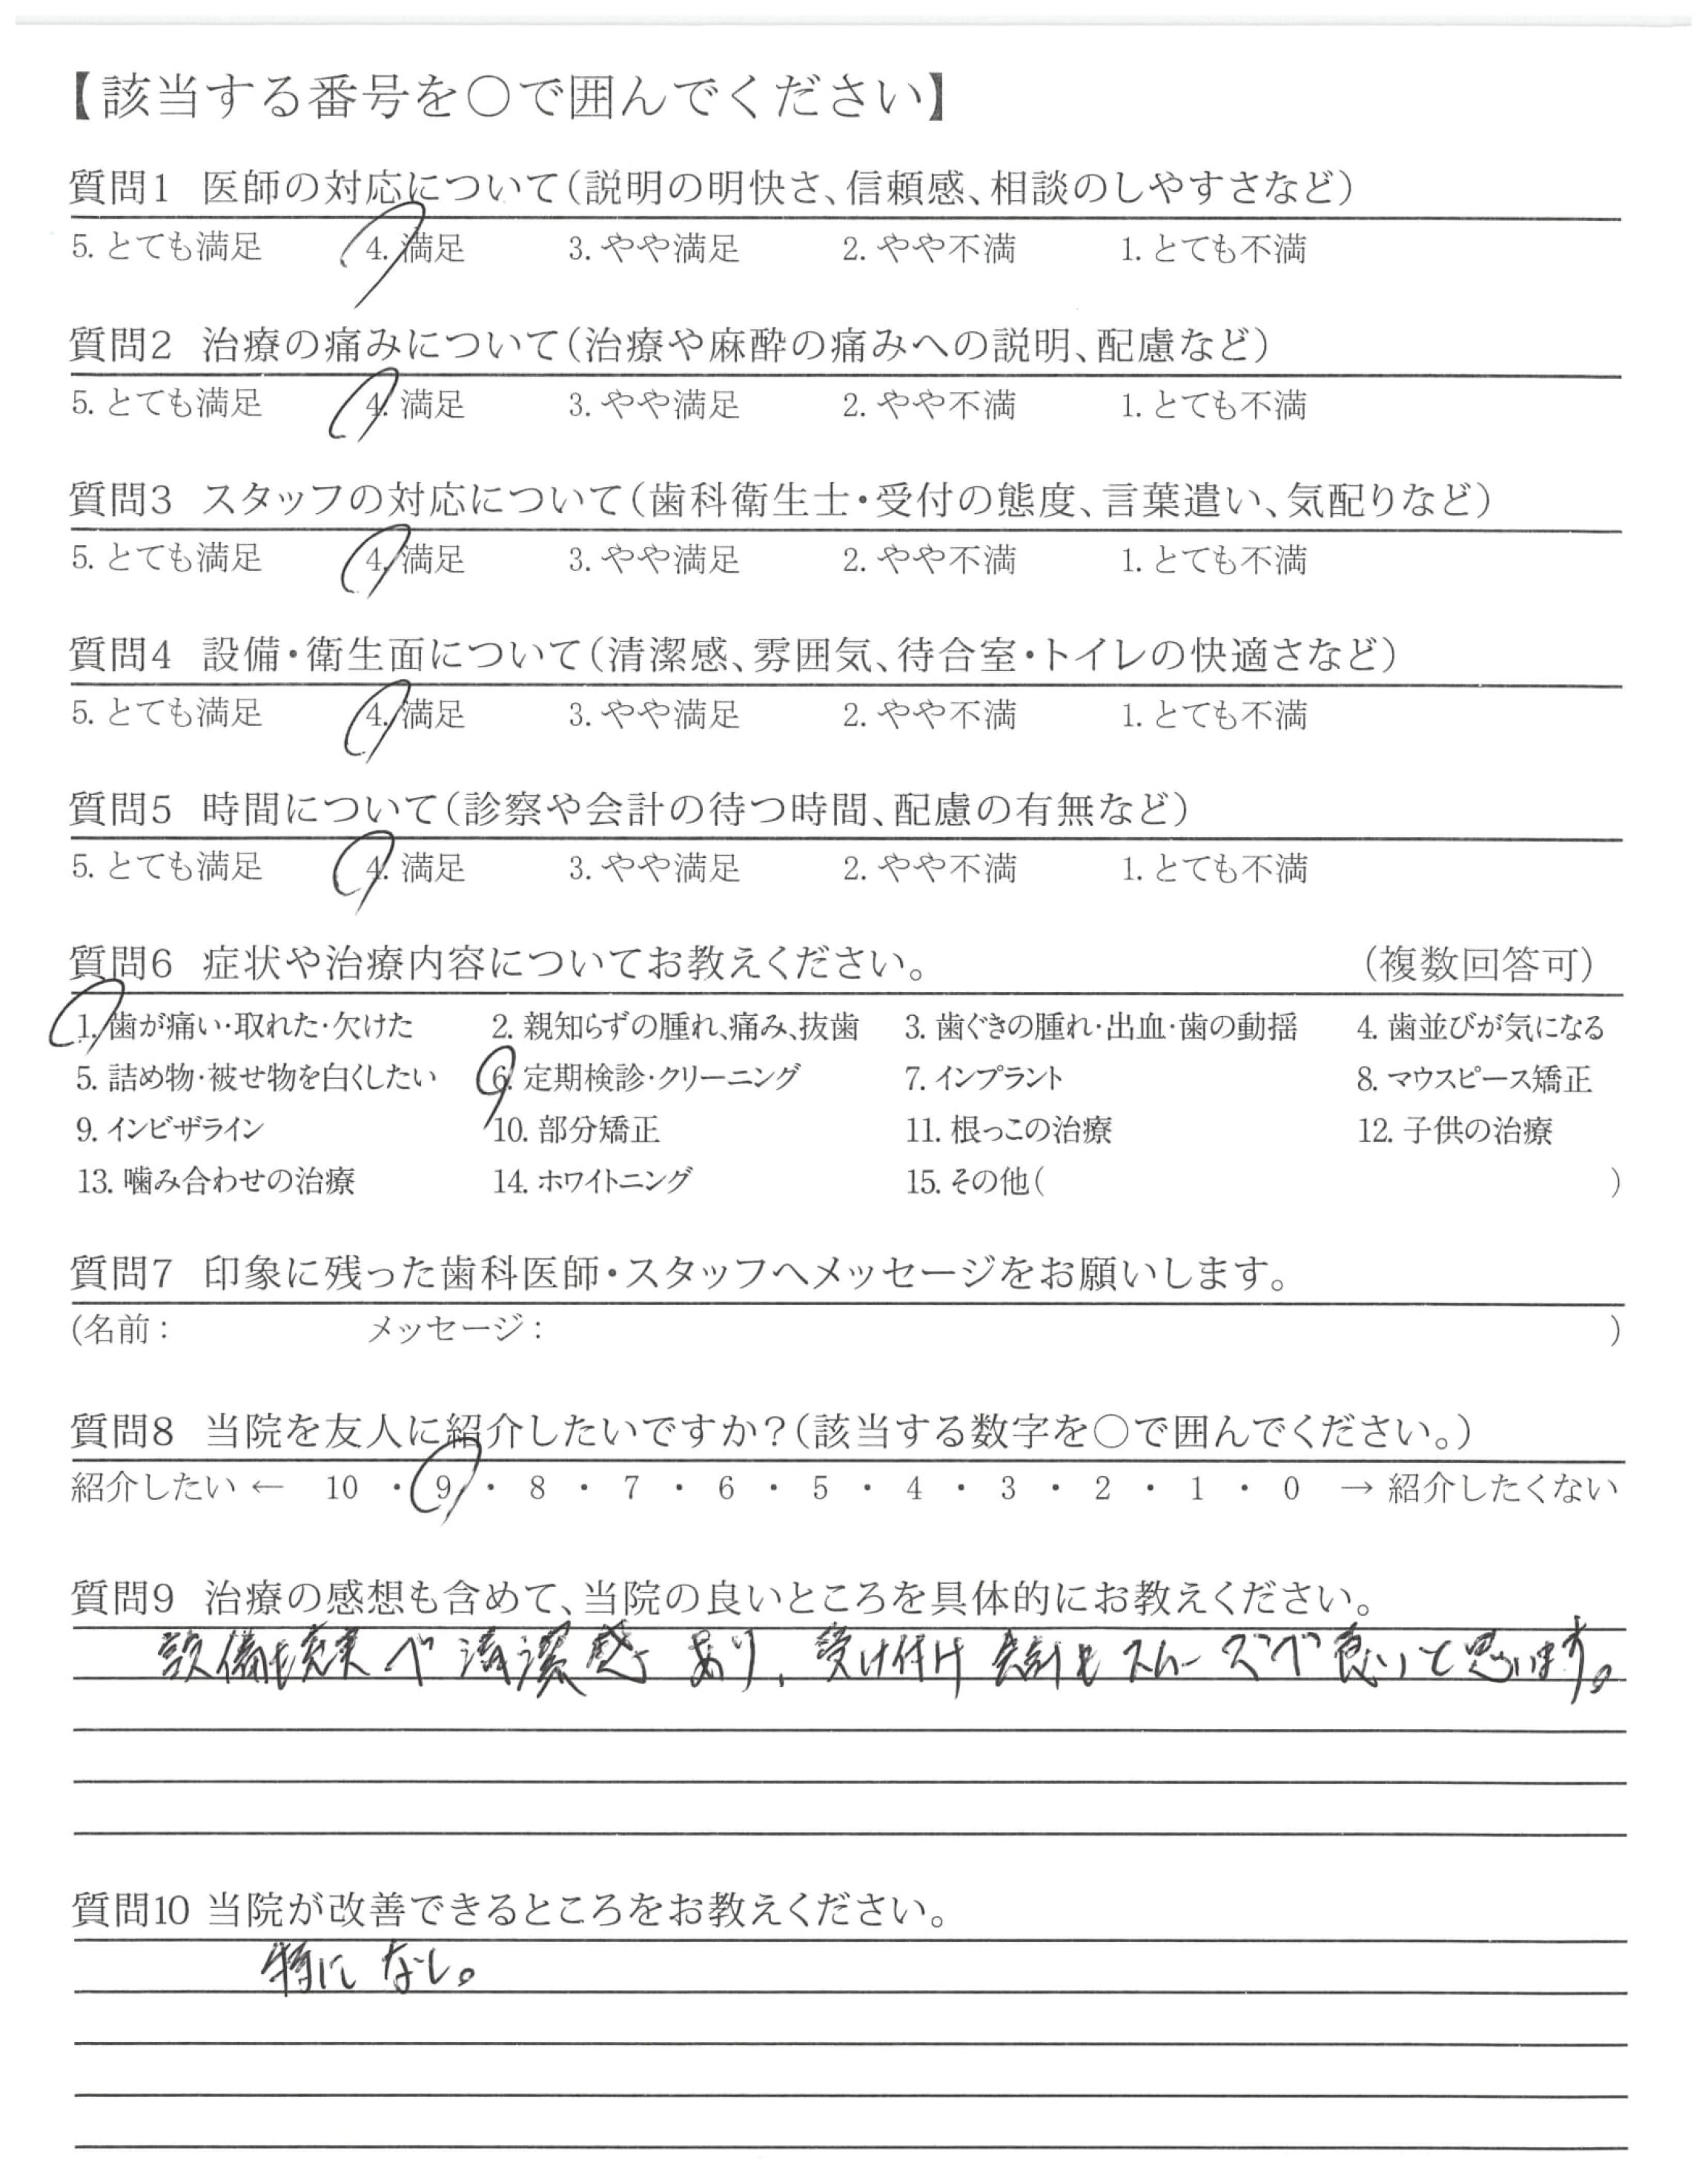 【該当する番号を○で囲んでください】
質問1 医師の対応について（説明の明快さ、信頼感、相談のしやすさなど）
5. とても満足 4. 満足 3. やや満足 2. やや不満 1. とても不満
質問2 治療の痛みについて（治療や麻酔の痛みへの説明、配慮など）
5. とても満足 4. 満足 3. やや満足 2. やや不満 1. とても不満
質問3 スタッフの対応について（歯科衛生士・受付の態度、言葉遣い、気配りなど）
5. とても満足 4. 満足 3. やや満足 2. やや不満 1. とても不満
質問4 設備・衛生面について（清潔感、雰囲気、待合室・トイレの快適さなど）
5. とても満足 4. 満足 3. やや満足 2. やや不満 1. とても不満
質問5 時間について（診察や会計の待つ時間、配慮の有無など）
5. とても満足 4. 満足 3. やや満足 2. やや不満 1. とても不満
質問6 症状や治療内容についてお教えください。 （複数回答可）
1. 歯が痛い・取れた・欠けた 2. 親知らずの腫れ、痛み、抜歯 3. 歯ぐきの腫れ・出血・歯の動揺 4. 歯並びが気になる
5. 詰め物・被せ物を白くしたい 6. 定期検診・クリーニング 7. インプラント 8. マウスピース矯正
9. インビザライン 10. 部分矯正 11. 根っこの治療 12. 子供の治療
13. 噛み合わせの治療 14. ホワイトニング 15. その他( )
質問7 印象に残った歯科医師・スタッフへメッセージをお願いします。
(名前： メッセージ： )
質問8 当院を友人に紹介したいですか？（該当する数字を○で囲んでください。）
紹介したい ← 10 ・ 9 ・ 8 ・ 7 ・ 6 ・ 5 ・ 4 ・ 3 ・ 2 ・ 1 ・ 0 → 紹介したくない
質問9 治療の感想も含めて、当院の良いところを具体的にお教えください。
設備も充実で 清潔感も あり、受け付け 会計も スムーズで 良いと思います。
質問10 当院が改善できるところをお教えください。
特に なし。